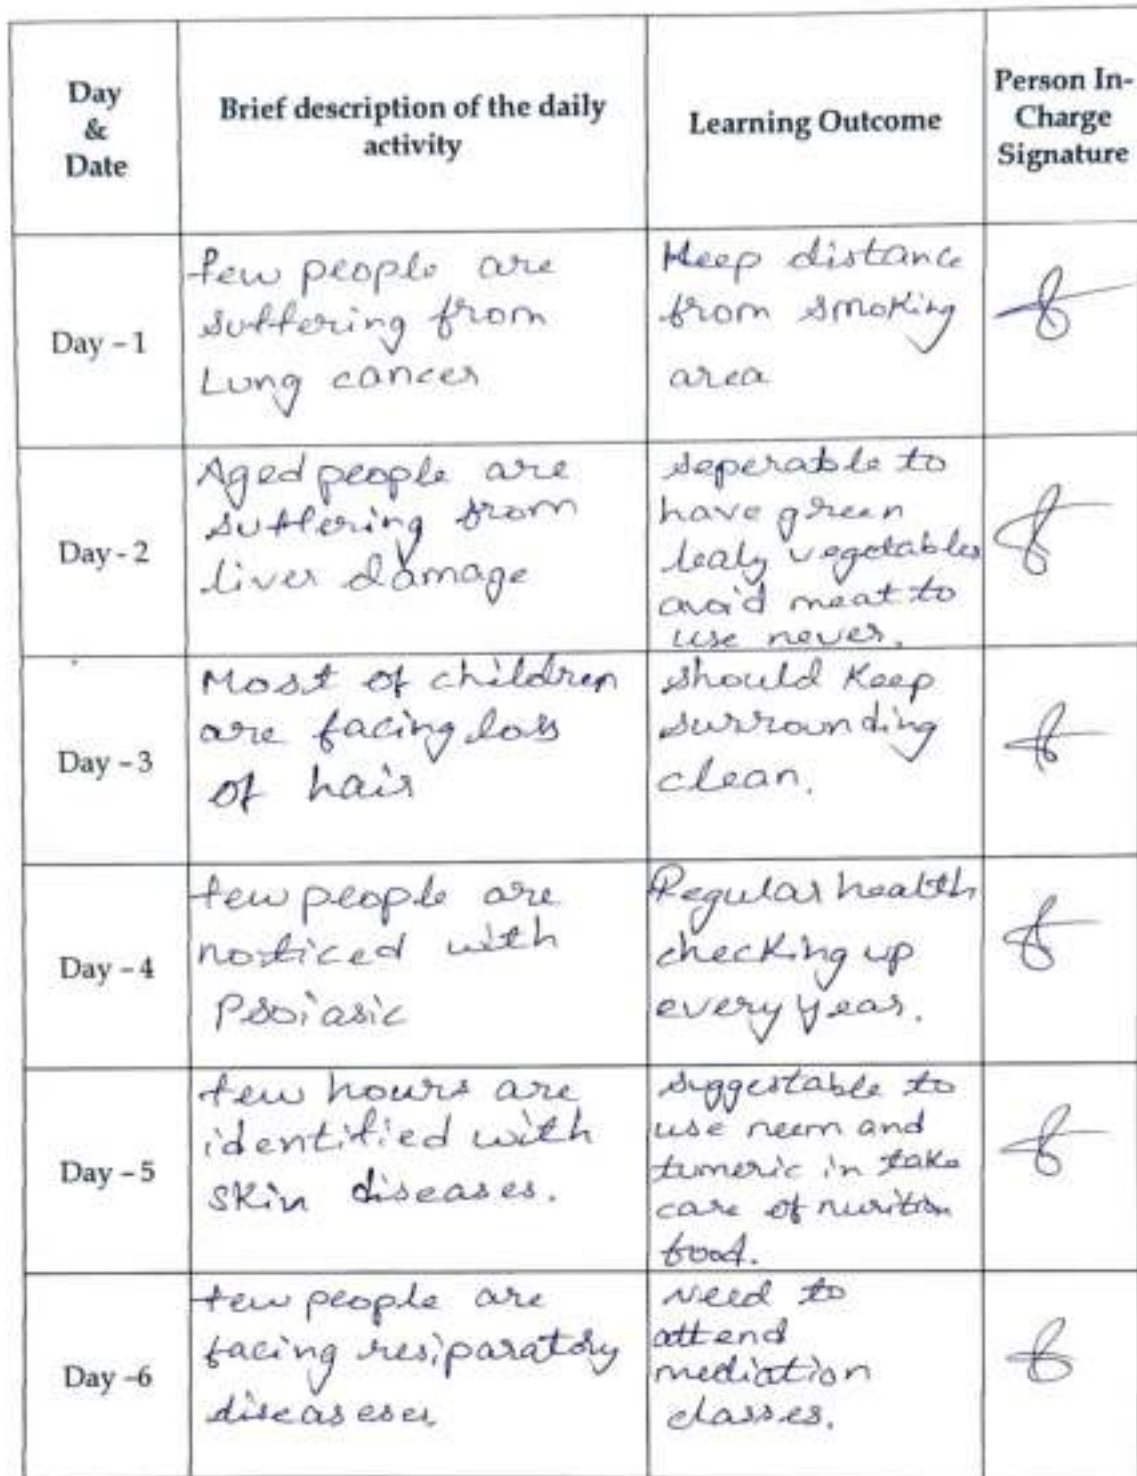 Day
&
Date
Brief description of the daily
activity
Learning Outcome
Person In-
Charge
Signature
Day – 1
few people are
suffering from
Lung cancer
Keep distance
from smoking
area
Day - 2
Aged people are
suffering from
liver damage
seperable to
have green
leafy vegetables
avoid meat to
use never.
Day – 3
Most of children
are facing loss
of hair
should Keep
surrounding
clean.
Day – 4
few people are
noticed with
Psoiasic
Regular health
checking up
every year.
Day – 5
few hours are
identified with
skin diseases.
suggestable to
use neem and
tumeric in take
care of nurition
food.
Day –6
few people are
facing resiparatory
diseaseses.
Need to
attend
mediation
classes.